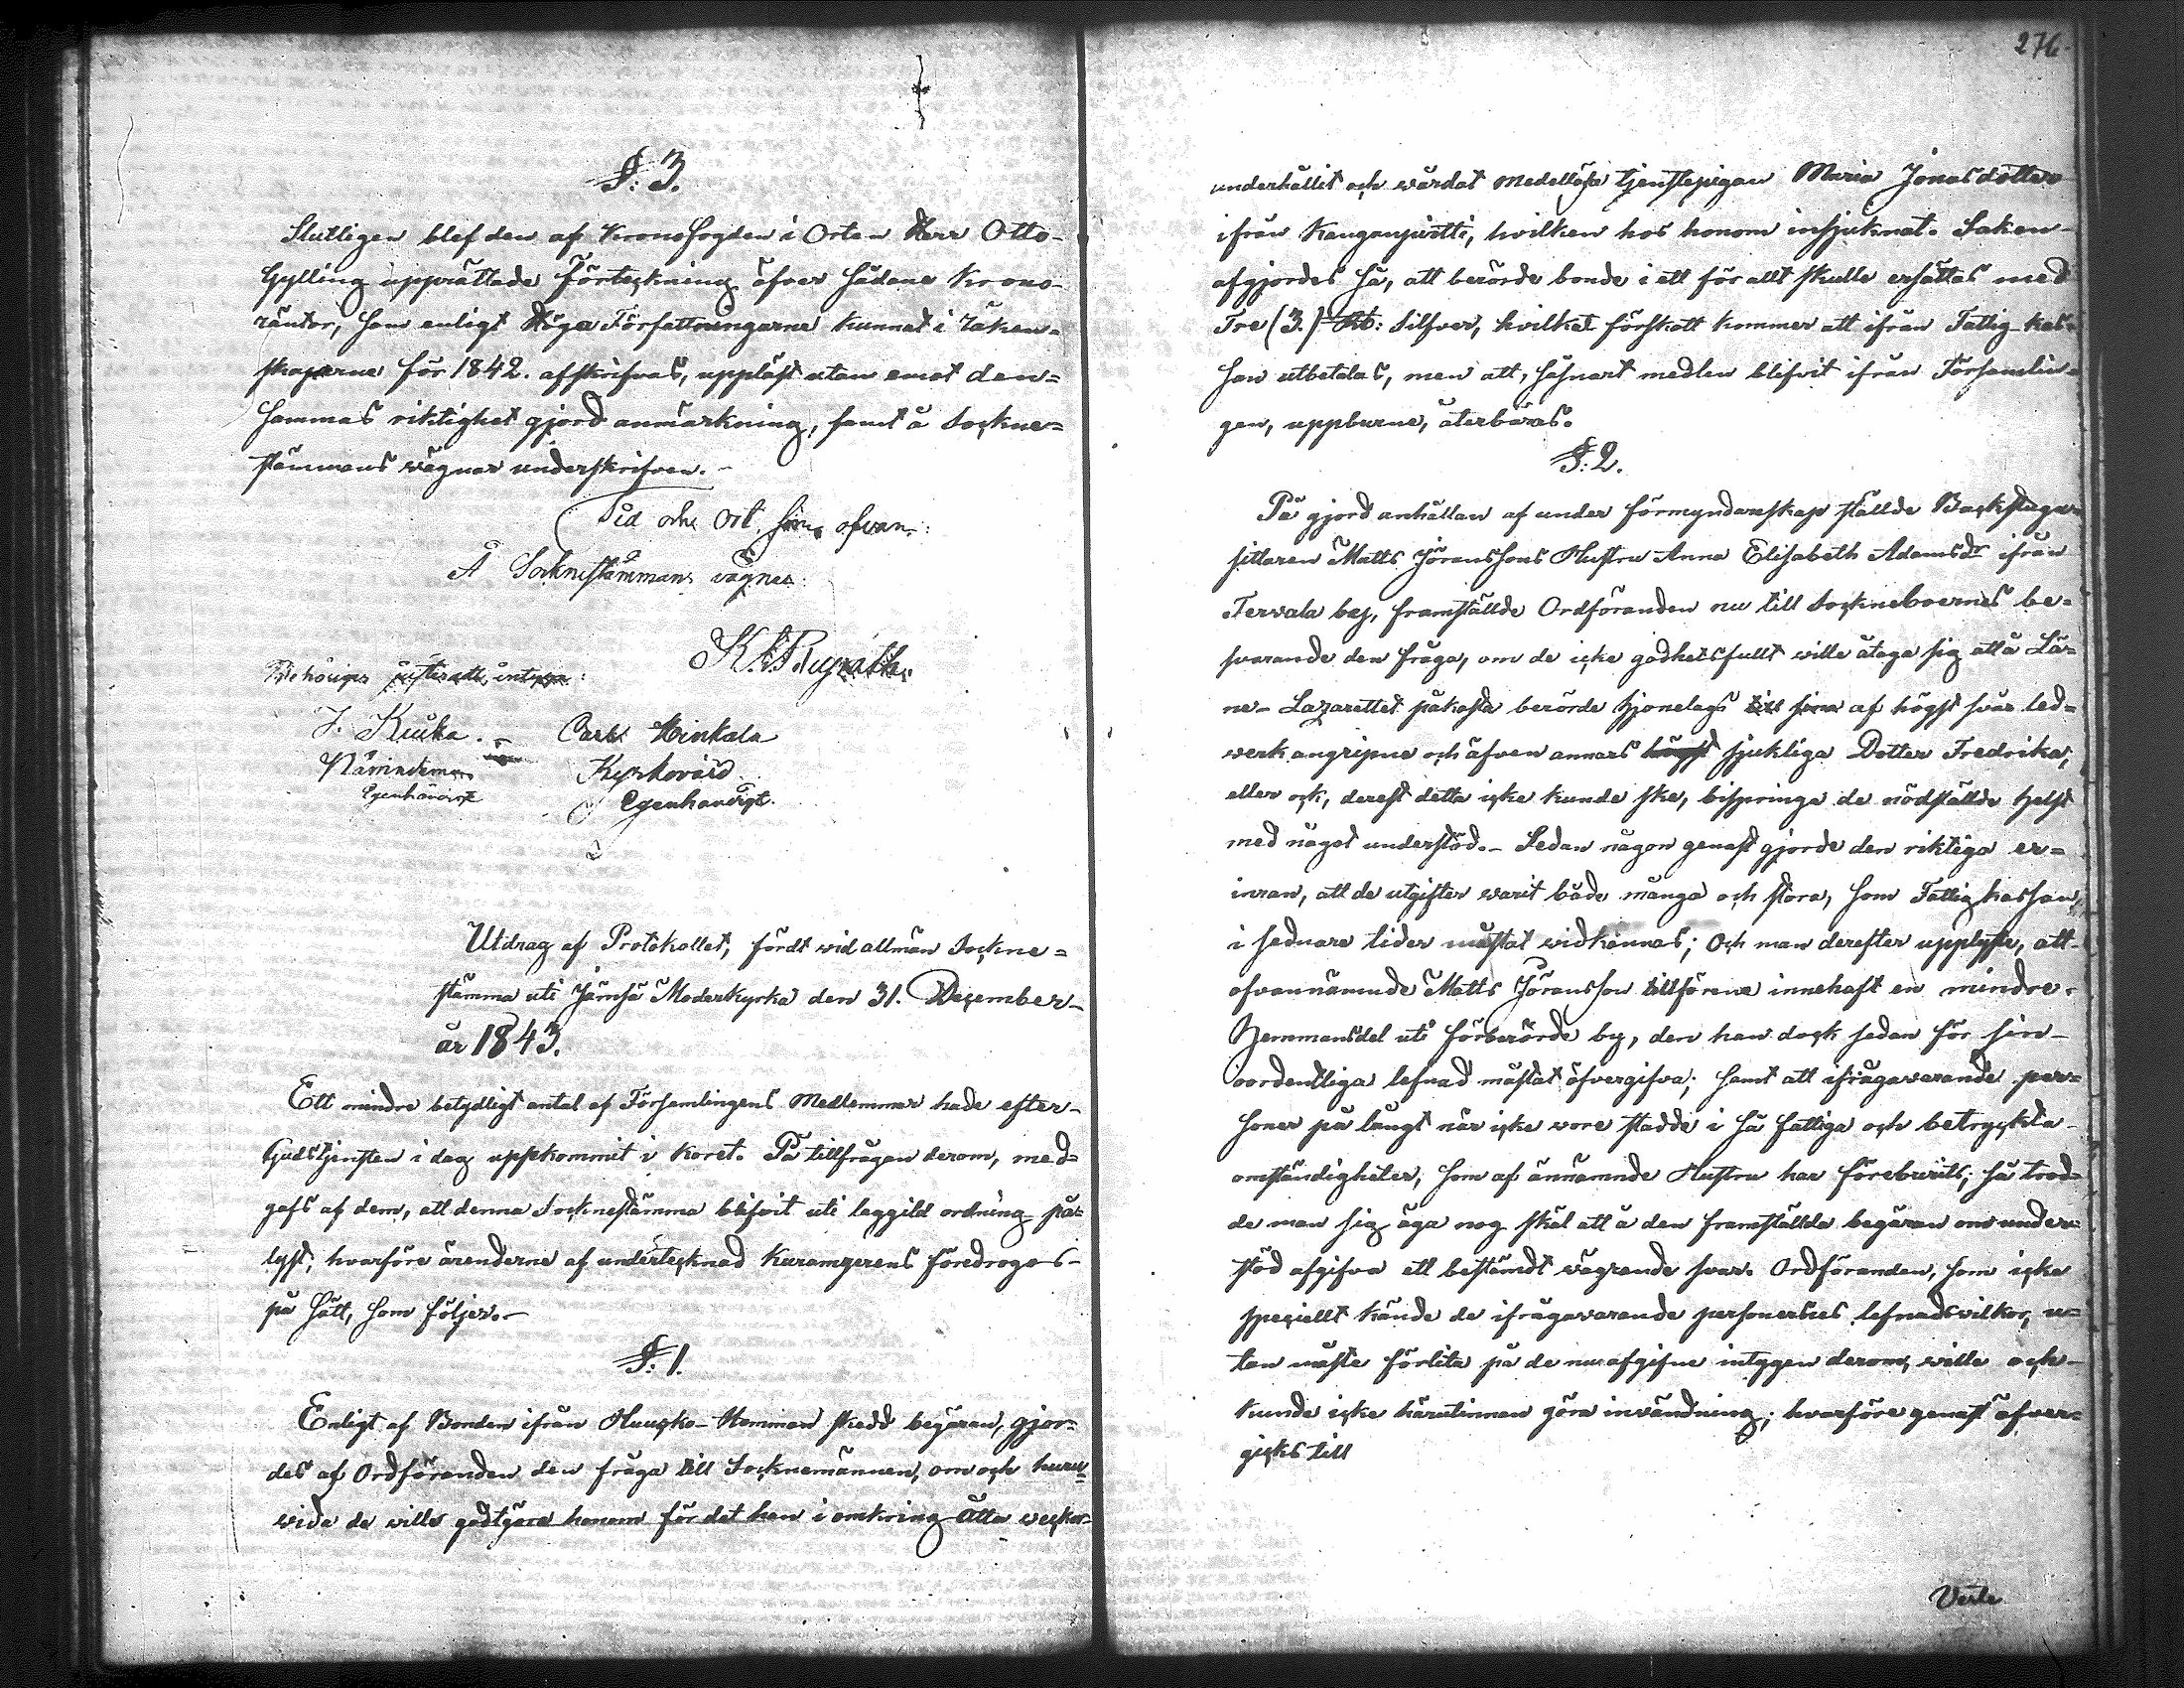 §: 3.
Slutligen blef den af Kronofogden i Orten Herr Otto-
Gylling upprättade Förteckning öfver sådane Krono-
räntor, som enligt Höga Författningarne kunnat i räken-
skaperne för 1842. afskrifvas, uppläst utan emot den=
sammas riktighet gjord anmärkning, samt å Sockne=
stämmans wägnar underskrifven. -
Tid och Ort, som ofvan:
Å Socknestämmans vägnar:
Behörigen justeradt, intyga:
J. Kiuka. - Carl Hinkala
Nämndeman Kyrkovärd
Egenhändigt Egenhändigt.
Utdrag af Protokollet, fördt wid allmän Sockne=
stämma uti Jämsä Moderkyrka den 31. December-
år 1843.
Ett mindre betydligt antal af Församlingens Medlemmar hade efter-
Gudstjensten i dag uppkommit i Koret. På tillfrågan derom, med=
gafs af dem, att denna Socknestämma blifvit uti laggild ordning på=
lyst; hvarföre ärenderne af undertecknad föredrogos-
på sätt, som följer. -
§: 1.
Enligt af Bonden ifrån Huucko-Homman skedd begäran, gjor=
des af Ordföranden den fråga till Socknemännen, om och huru=
wida de wille godtgöra honom för det han i omkring Åtta weckor
276.
underhållit och wårdat medellösa tjenstepigan Maria Jonasdotter
ifrån Kanganpirtti, hvilken hos honom insjuknat. Saken-
afgjordes så, att berörde bonde i ett för allt skulle ersättas med
Tre (3.) Rb: Silfver, hvilket förskott kommer att ifrån Fattig-kas-
san utbetalas, men att, såsnart medlen blifvit ifrån Församlin=
gen, uppburne, återbäras.
§: 2.
På gjord anhållan af under förmynderskap ställde Backstugu-
sittaren Matts Jöranssons Hustru Anna Elisabeth Adamsdr ifrån
Tervala by, framställde Ordföranden nu till Sockneboernes be=
svarande den fråga, om de icke godhetsfullt wille åtaga sig att å Lä=
ne-Lazarettet påkosta berörde Hjonelags till sina af högst svår led=
werk angripna och äfven annars högst sjukliga Dotter Fredrika;
eller ock, derest detta icke kunde ske, bispringa de nödställde helst
med något understöd. - Sedan någon genast gjorde den riktiga er=
inran, att de utgifter warit både många och stora, som Fattigkassan,
i sednare tider måstat widkännas; Och man derefter upplyste, att-
ofvannämnde Matts Jöransson tillförene innehaft en mindre-
Hemmansdel uti förberörde by, den han dock sedan för sin-
oordentliga lefnad måstat öfvergifva; samt att ifrågavarande per=
soner på långt när icke vore stadde i så fattiga och betryckta-
omständigheter, som af ännämnde Hustru har föreburits; så trod-
de man sig äga nog skäl att å den framställda begäran om under=
stöd afgifva ett bestämdt wägrande svar. Ordföranden, som icke
speciellt kände de ifrågavarande personernes lefnadsvilkor, u=
tan måste förlita på de nu afgifne intygen derom, wille ock-
kunde icke härutinnan göra invändning; hvarföre genast öfver=
gicks till
Verte